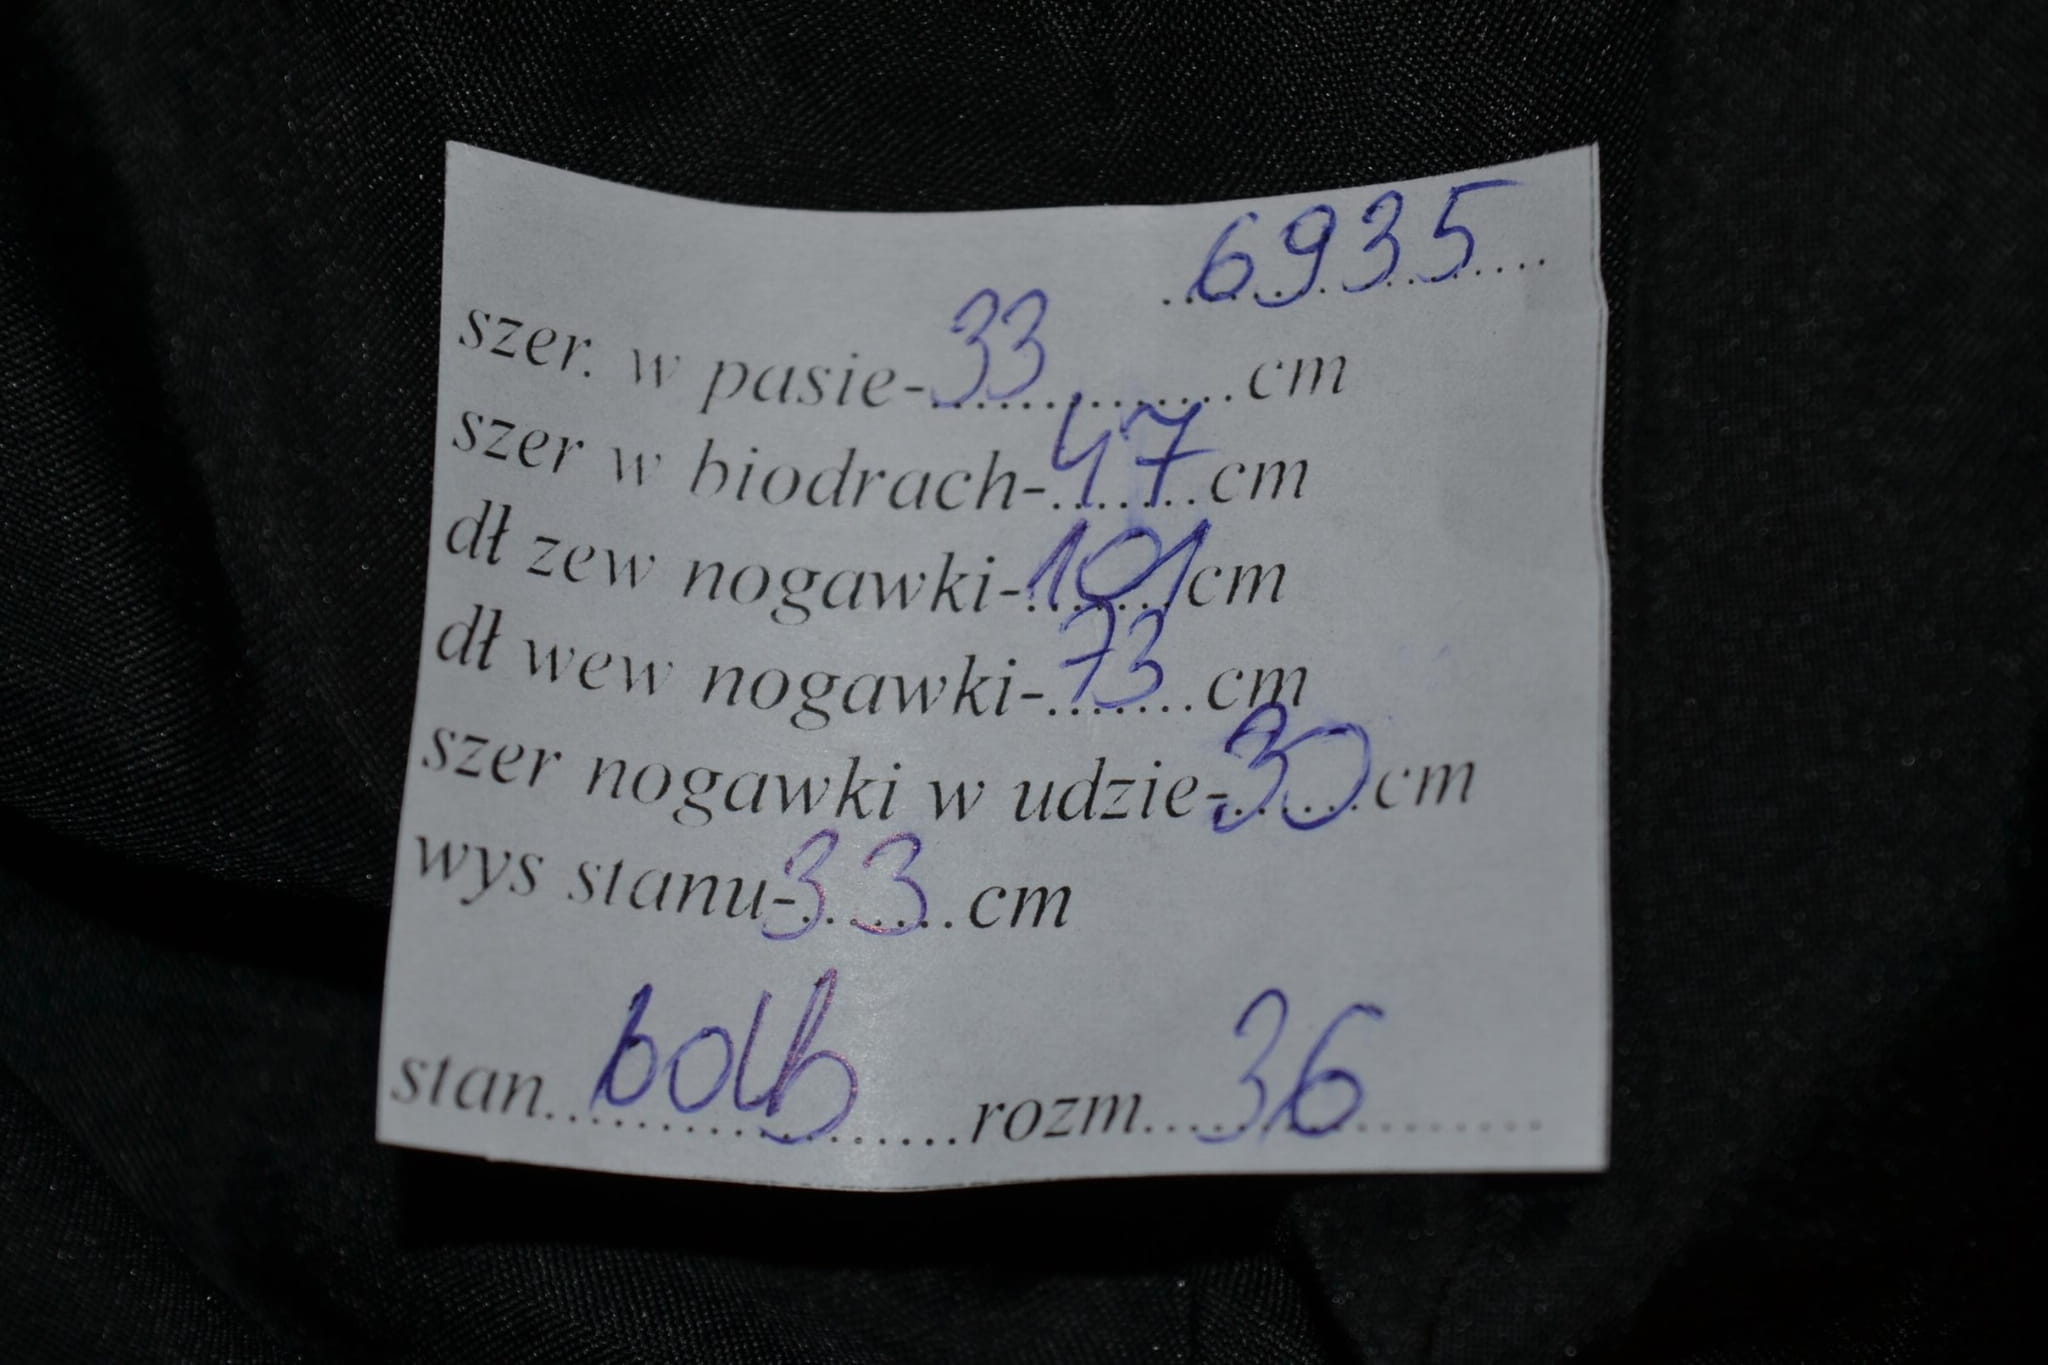 6935
szer. w pasie-33cm
szer w biodrach-47cm
dł zew nogawki-101cm
dł wew nogawki-73cm
szer nogawki w udzie-30cm
wys stanu-33cm
stan rozm 36